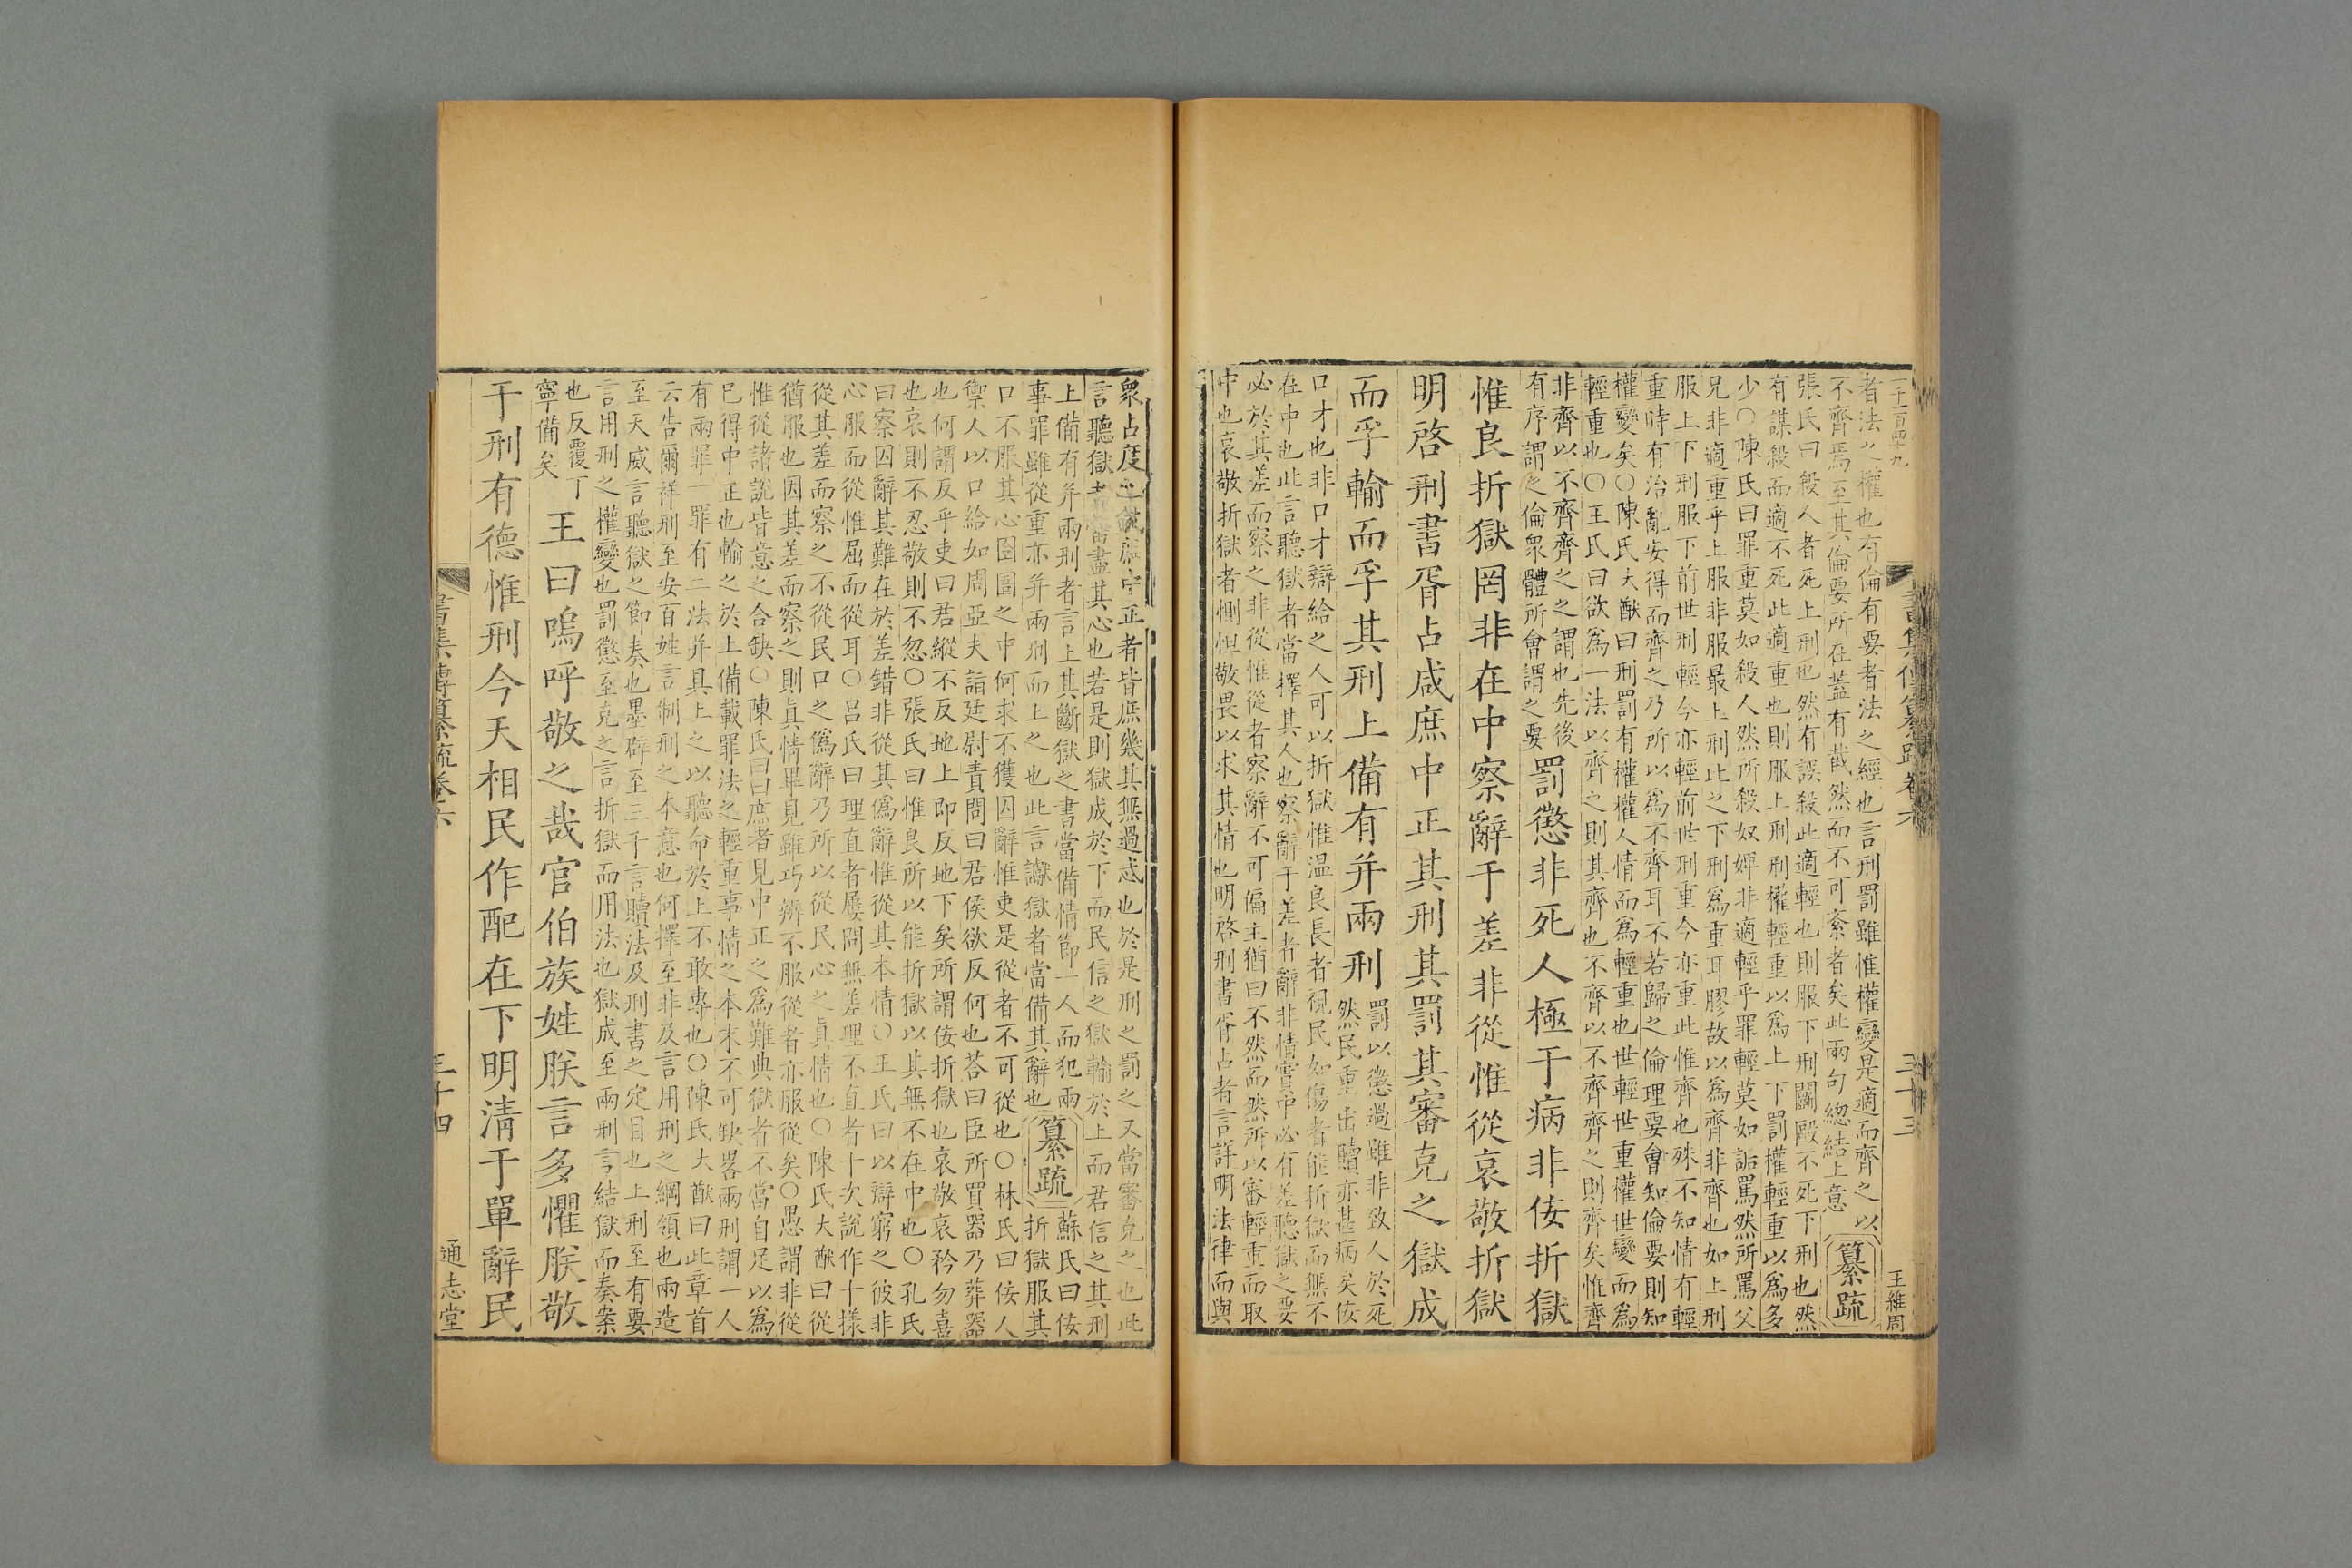 者法之權也有倫有要者法之經也言刑罰雖惟權變是適而齊之以
不齊焉至其倫要所在蓋有截然而不可紊者矣此兩句總結上意 纂疏
張氏曰殺人者死上刑也然有誤殺此適輕也則服下刑鬭毆不死下刑也然
有謀殺而適不死此適重也則服上刑刑權輕重以爲上下罰權輕重以爲多
少○陳氏曰罪重莫如殺人然所殺奴婢非適輕乎罪輕莫如詬罵然所罵父
兄非適重乎上服非服最上刑此之下刑爲重耳膠故以爲齊非齊也如上刑
服上下刑服下前世刑輕今亦輕前世刑重今亦重此惟齊也殊不知情有輕
重時有治亂安得而齊之乃所以爲不齊耳不若歸之倫理要會知倫要則知
權變矣○陳氏大猷曰刑罰有權權人情而爲輕重也世輕世重權世變而爲
輕重也○王氏曰欲爲一法以齊之則其齊也不齊以不齊齊之則齊矣惟齊
非齊以不齊齊之之謂也先後
有序謂之倫衆體所會謂之要
罰懲非死人極于病非佞折獄
惟良折獄罔非在中察辭于差非從惟從哀敬折獄
明啓刑書胥占咸庶中正其刑其罰其審克之獄成
而孚輸而孚其刑上備有并兩刑
罰以懲過雖非致人於死
然民重出贖亦甚病矣佞
口才也非口才辯給之人可以折獄惟温良長者視民如傷者能折獄而無不
在中也此言聽獄者當擇其人也察辭于差者辭非情實中必有差聽獄之要
必於其差而察之非從惟從者察辭不可偏主猶曰不然而然所以審輕重而取
中也哀敬折獄者惻怛敬畏以求其情也明啓刑書胥占者言詳明法律而與
書集傳纂疏卷六
三十三
王維周
衆占度也咸庶中正者皆庶幾其無過忒也於是刑之罰之又當審克之也此
言聽獄者當盡其心也若是則獄成於下而民信之獄輸於上而君信之其刑
上備有并兩刑者言上其斷獄之書當備情節一人而犯兩
事罪雖從重亦并兩刑而上之也此言讞獄者當備其辭也
纂疏
蘇氏曰佞
折獄服其
口不服其心囹圄之中何求不獲囚辭惟吏是從者不可從也○林氏曰佞人
禦人以口給如周亞夫詣廷尉責問曰君侯欲反何也荅曰臣所買器乃葬器
也何謂反乎吏曰君縱不反地上即反地下矣所謂佞折獄也哀敬哀矜勿喜
也哀則不忍敬則不忽○張氏曰惟良所以能折獄以其無不在中也○孔氏
曰察囚辭其難在於差錯非從其爲辭惟從其本情○王氏曰以辯窮之彼非
心服而從惟屈而從耳○呂氏曰理直者屢問無差理不直者十次說作十樣
從其差而察之不從民口之僞辭乃所以從民心之真情也○陳氏大猷曰從
猶服也因其差而察之則真情畢見雖巧辨不服從者亦服從矣○愚謂非從
惟從諸說皆意之合缺○陳氏曰曰庶者見中正之爲難典獄者不當自足以爲
已得中正也輸之於上備載罪法之輕重事情之本末不可缺畧兩刑謂一人
有兩罪一罪有二法并具上之以聽命於上不敢專也○陳氏大猷曰此章首
云告爾祥刑至安百姓言制刑之本意也何擇至非及言用刑之綱領也兩造
至天威言聽獄之節奏也墨辟至三千言贖法及刑書之定目也上刑至有要
言用刑之權變也罰懲至克之言折獄而用法也獄成至兩刑言結獄而奏案
也反覆丁
寧備矣
王曰嗚呼敬之哉官伯族姓朕言多懼朕敬
于刑有德惟刑今天相民作配在下明清于單辭民
書集傳纂疏卷六
三十四
通志堂